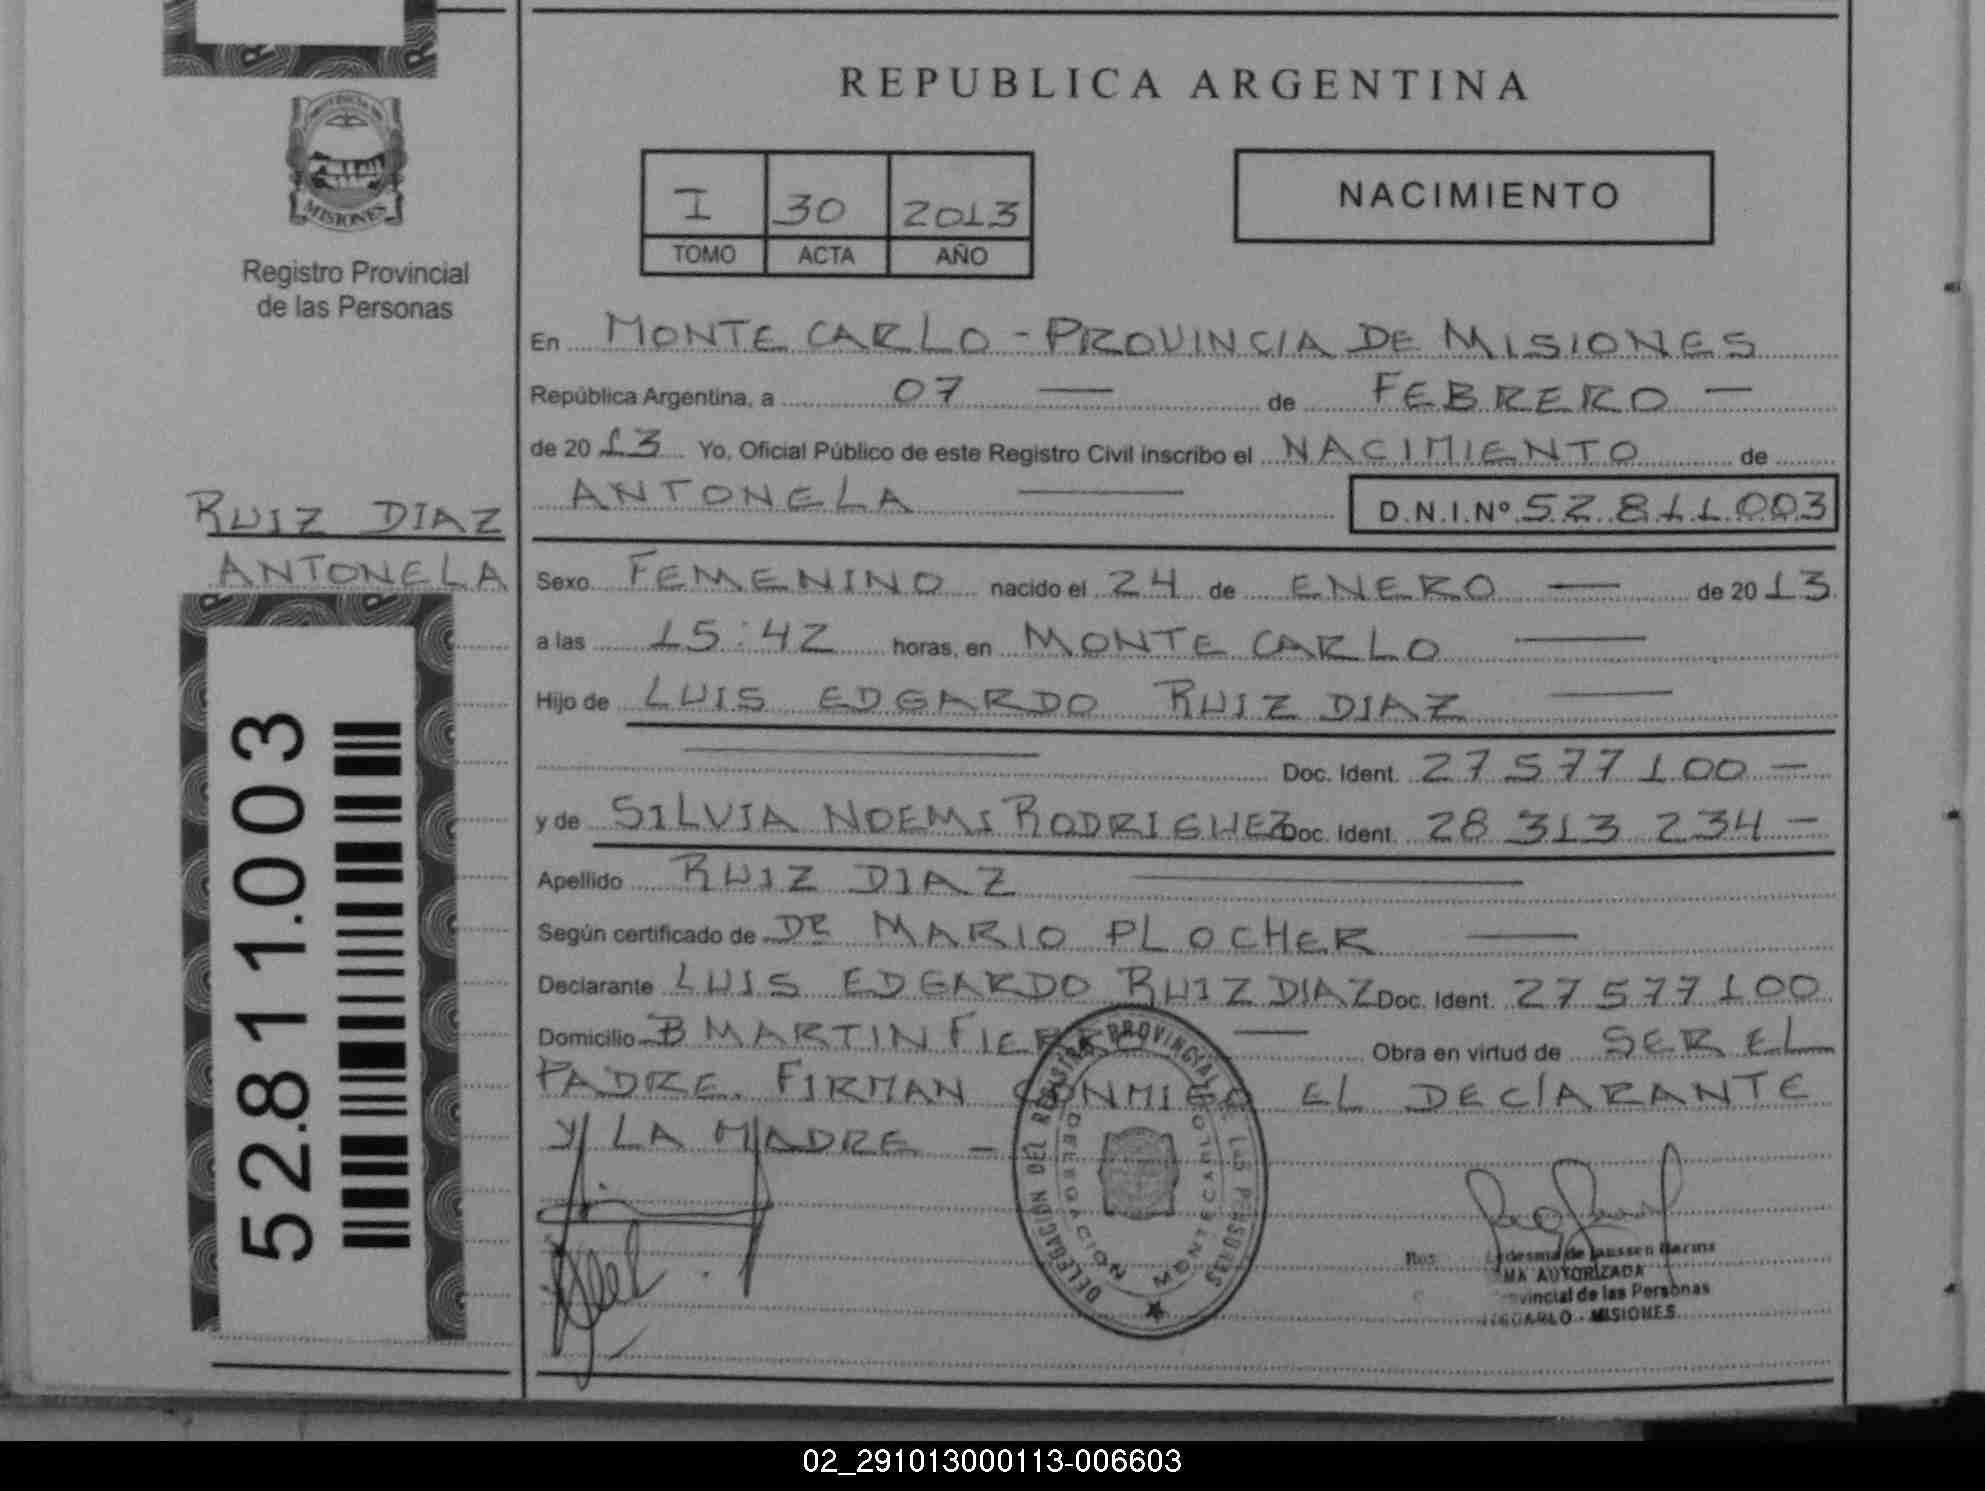 REPUBLICA ARGENTINA
PROVINCIA DE
MISIONES
Registro Provincial
de las Personas
I 30 2013
TOMO ACTA AÑO
NACIMIENTO
En MONTE CARLO - PROVINCIA DE MISIONES
República Argentina, a 07 — de FEBRERO —
de 20 13 Yo, Oficial Público de este Registro Civil inscribo el NACIMIENTO de
ANTONELA — D.N.I.Nº 52 811 003
RUIZ DIAZ
ANTONELA
Sexo FEMENINO nacido el 24 de ENERO — de 20 13
a las 15:42 horas, en MONTE CARLO —
Hijo de LUIS EDGARDO RUIZ DIAZ —
— Doc. Ident. 27 577 100 —
y de SILVIA NOEMI RODRIGUEZ Doc. Ident. 28 313 234 —
Apellido RUIZ DIAZ —
Según certificado de DR MARIO PLOCHER —
Declarante LUIS EDGARDO RUIZ DIAZ Doc. Ident. 27 577 100
Domicilio B MARTIN FIERRO — Obra en virtud de SER EL
PADRE. FIRMAN CONMIGO EL DECLARANTE
Y LA MADRE —
52.811.003
DELEGACION DEL REGISTRO PROVINCIAL DE LAS PERSONAS
DELEGACION MONTECARLO
Ledesma de Janssen Harms
AUTORIZADA
vincial de las Personas
MISIONES
02_291013000113-006603